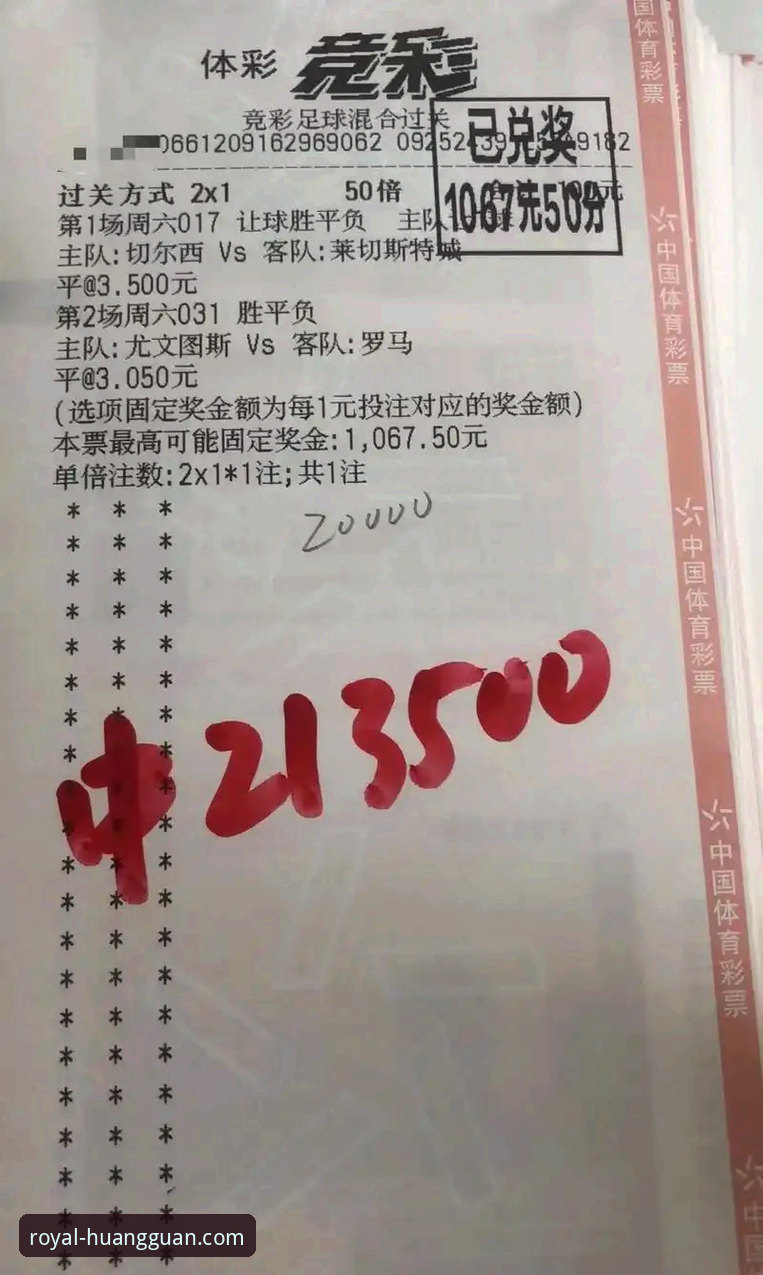 体彩 竞彩
竞彩足球混合过关
0661209162969062 0925243 9182
已兑奖
1067元50分
过关方式 2x1 50倍 元
第1场周六017 让球胜平负 主队
主队:切尔西 Vs 客队:莱切斯特城
平@3.500元
第2场周六031 胜平负
主队:尤文图斯 Vs 客队:罗马
平@3.050元
(选项固定奖金额为每1元投注对应的奖金额)
本票最高可能固定奖金:1,067.50元
单倍注数:2x1*1注;共1注
20000
中213500
国体育彩票
中国体育彩票
中国体育彩票
中国体育彩票
中国
royal-huangguan.com